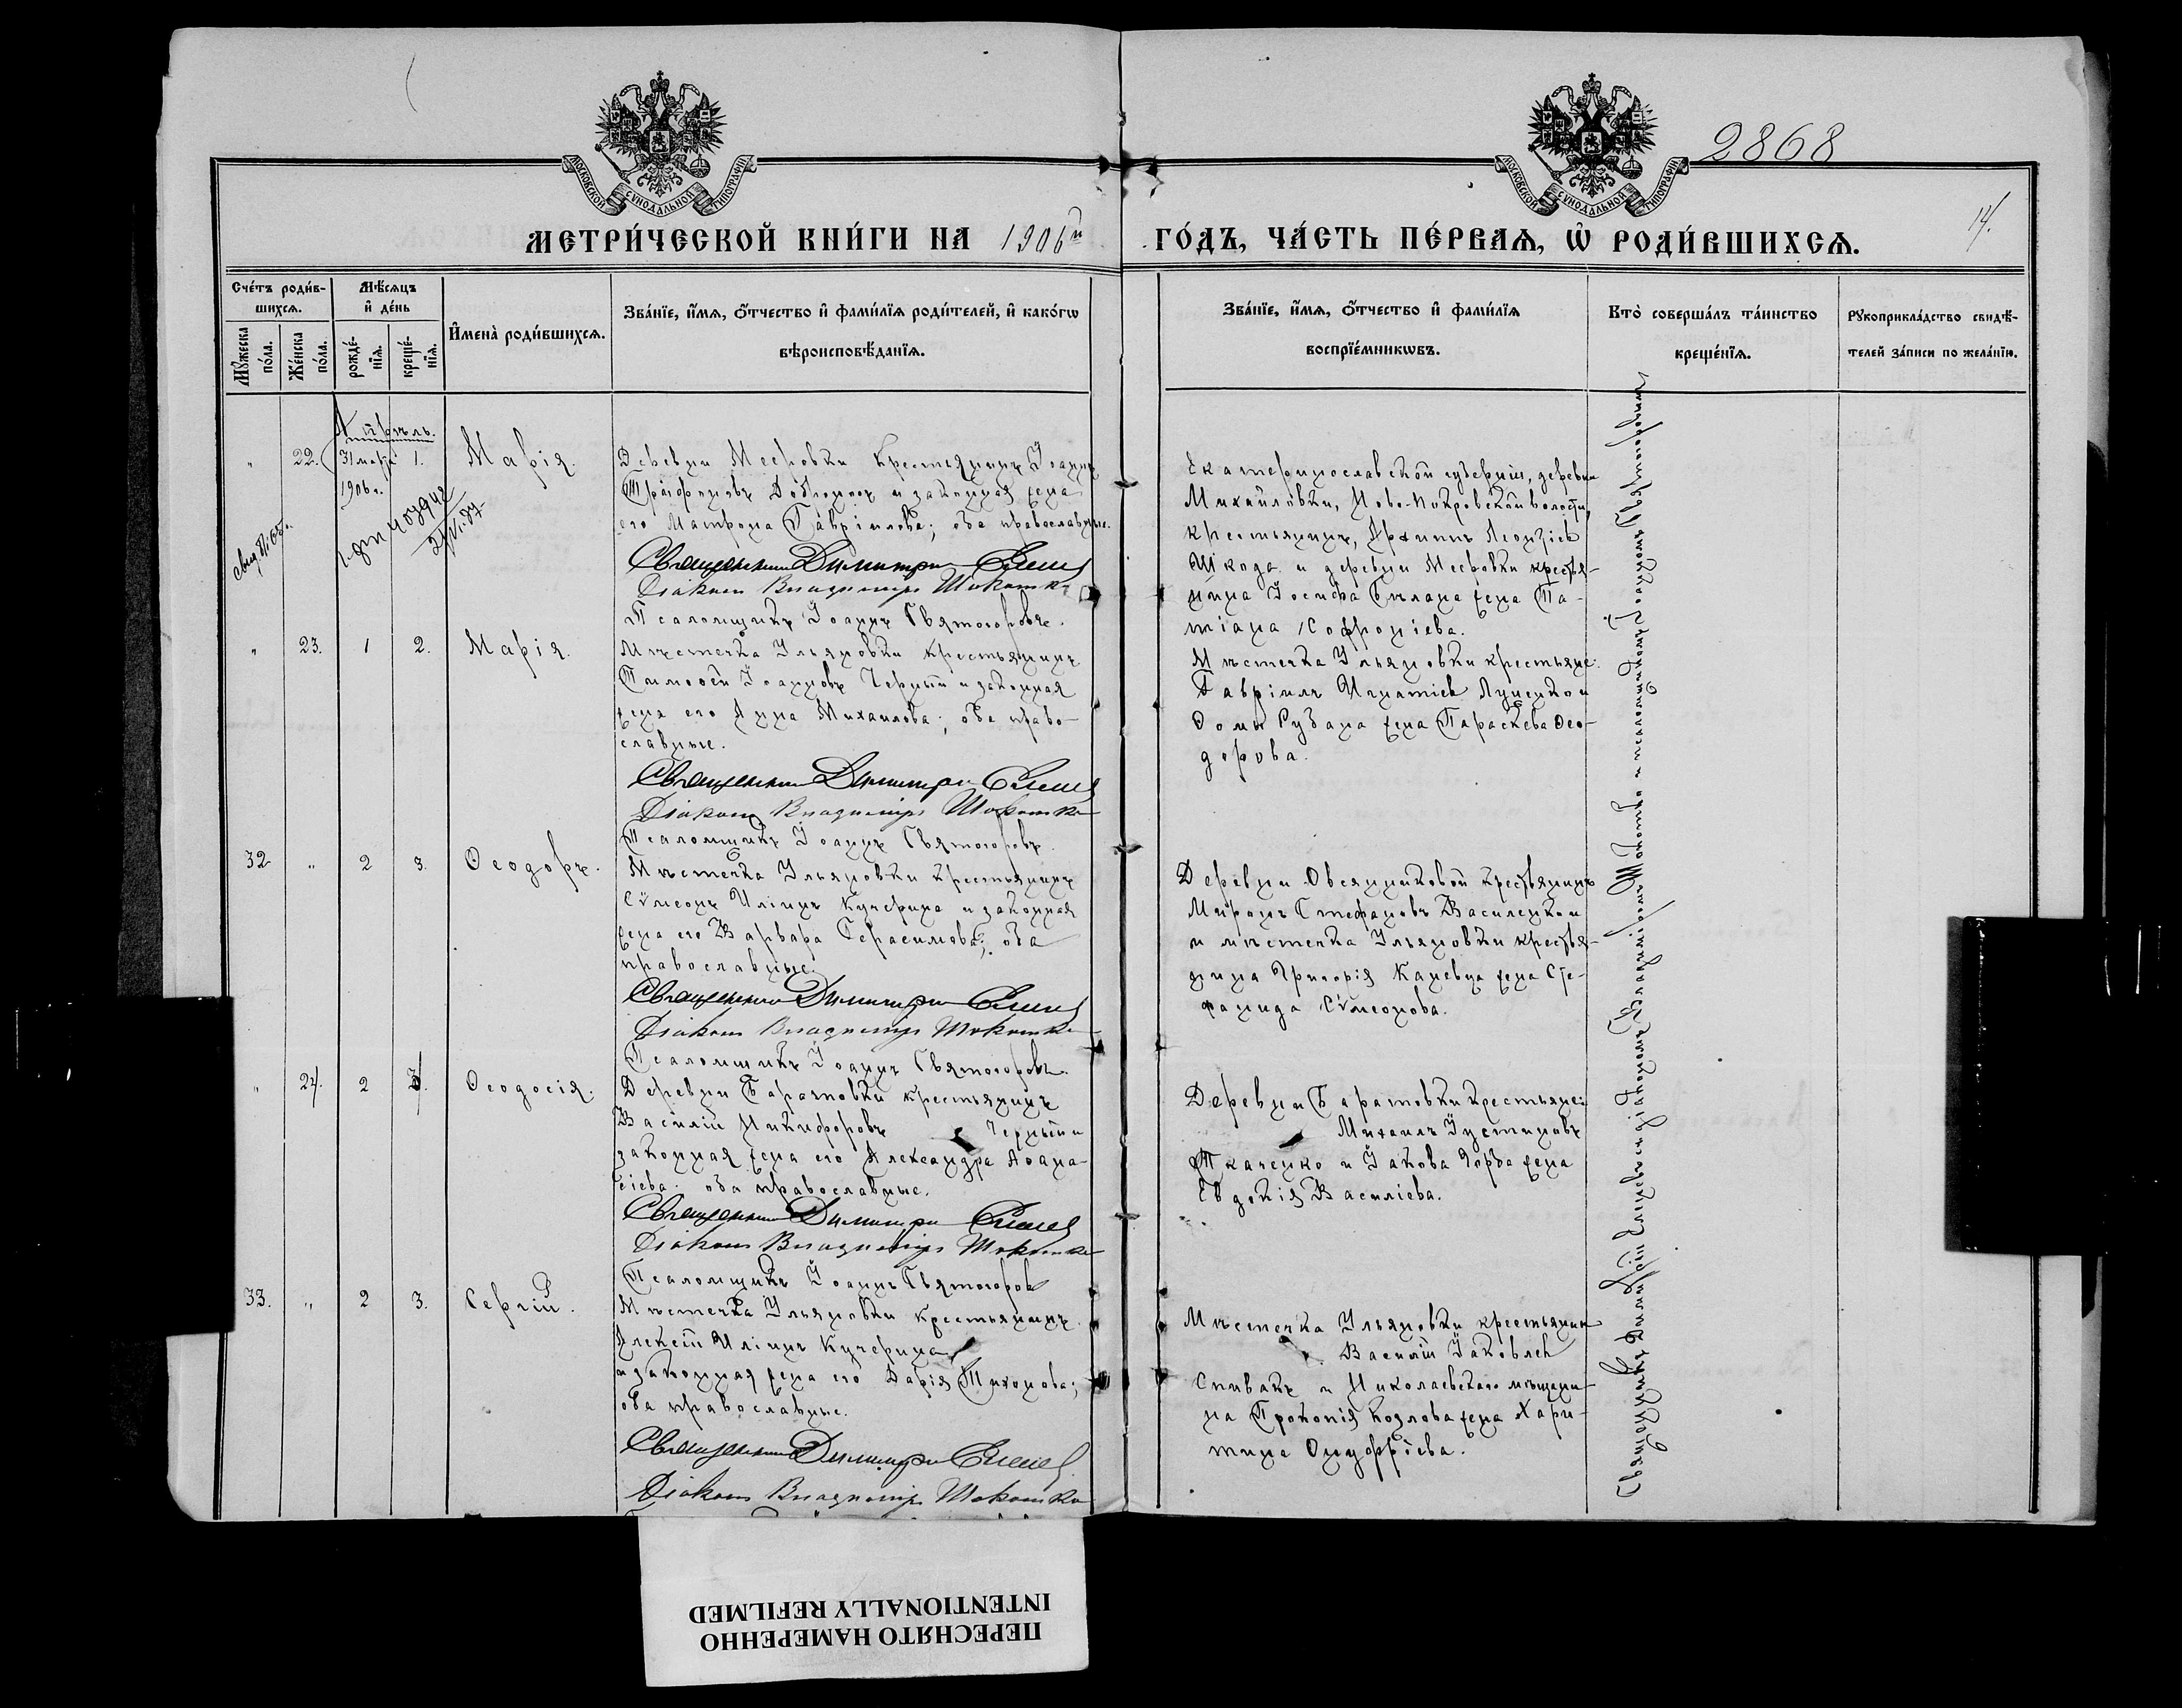 2868
14.
МОСКОВСКОЙ СУНОДАЛЬНОЙ ТИПОГРАФІИ
МОСКОВСКОЙ СУНОДАЛЬНОЙ ТИПОГРАФІИ
МЕТРИ́ЧЕСКОЙ КНИ́ГИ НА 1906й ГО́ДЪ, ЧА́СТЬ ПЕ́РВАѦ, Ѡ РОДИ́ВШИХСѦ.
Сче́тъ роди́в-
шихсѧ.
Мꙋжеска по́ла.
Же́нска по́ла.
Мѣ́сѧцъ
и҆ де́нь
рожде́-
нїѧ.
креще́-
нїѧ.
И҆мена̀ роди́вшихсѧ.
Зва́нїе, и҆́мѧ, ѻ҆́тчество и҆ фами́лїѧ роди́телей, и҆ како́гѡ
вѣроисповѣ́данїѧ.
Зва́нїе, и҆́мѧ, ѻ҆́тчество и҆ фами́лїѧ
воспрїе́мникѡвъ.
Кто̀ соверша́лъ та́инство
креще́нїѧ.
Рꙋкоприкла́дство свидѣ́-
телей за́писи по жела́нїю.
Апрѣль.
" 22. 31 марта 1. Марія.
1906 г.
Деревни Мееровки крестьянинъ Іоаннъ
Трофимовъ и законная жена
его Матрона Гавріилова; оба православные.
Священникъ Димитрій
Діаконъ Владиміръ Шокотко
Псаломщикъ Іоаннъ Святогоровъ.
Екатеринославской губерніи, деревни
Михайловки, Ново-Покровской волости,
крестьянинъ, Архипъ Леонтіев
Шкода и деревни Мееровки крестья-
нина Іосифа Билана жена Та-
тіана Софроніева.
" 23. 1 2. Марія.
Мѣстечка Ульяновки крестьянинъ
Тимоѳей Іоанновъ Черный и законная
жена его Анна Михаилова; оба право-
славные.
Священникъ Димитрій
Діаконъ Владиміръ Шокотко
Псаломщикъ Іоаннъ Святогоровъ.
Мѣстечка Ульяновки крестьяне:
Гавріилъ Игнатіев Луценко и
Ѳомы Рубана жена Параскева Ѳео-
дорова.
32 " 2 3. Ѳеодоръ.
Мѣстечка Ульяновки крестьянинъ
Сѵмеонъ Иліинъ Кучерина и законная
жена его Варвара Герасимова; оба
православные.
Священникъ Димитрій
Діаконъ Владиміръ Шокотко
Псаломщикъ Іоаннъ Святогоровъ.
Деревни Овсянниковой крестьянинъ
Миронъ Стефановъ Василенко и
и мѣстечка Ульяновки крестья-
нина Григорія Каневца жена Сте-
фанида Сѵмеонова.
" 24. 2 3. Ѳеодосія.
Деревни Баратовки крестьянинъ
Василій Никифоровъ Черный и
законная жена его Александра Аѳана-
сіева. оба православные.
Священникъ Димитрій
Діаконъ Владиміръ Шокотко
Псаломщикъ Іоаннъ Святогоров
Деревни Баратовки крестьяне:
Михаилъ Іустиновъ
Ткаченко и Іакова Горба жена
Евдокія Василіева.
33. " 2 3. Сергій.
Мѣстечка Ульяновки крестьянинъ
Алексѣй Иліинъ Кучерина
и законная жена его Дарія Тихонова;
оба православные.
Священникъ Димитрій
Діаконъ Владиміръ Шокотко
Мѣстечка Ульяновки крестьянин
Василій Іаковлев
Спивакъ и Николаевскаго мѣщани-
на Прокопія Козлова жена Хари-
тина Онуфріева.
Священникъ Димитрій съ діакономъ Владиміромъ Шокотко и псаломщикомъ Іоанномъ Святогоровымъ
ПЕРЕСНЯТО НАМЕРЕННО
INTENTIONALLY REFILMED